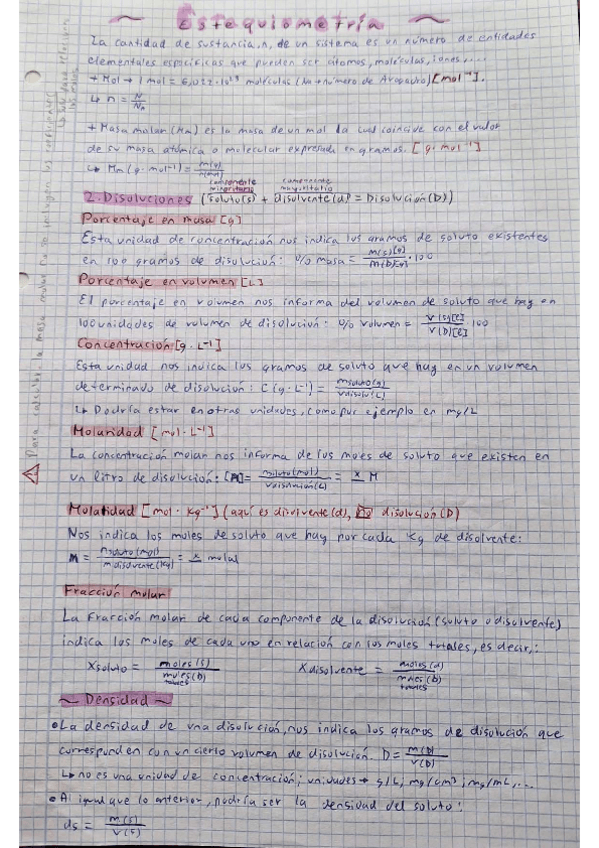 ~ Estequiometría ~
La cantidad de sustancia, n, de un sistema es un número de entidades
elementales específicas que pueden ser átomos, moléculas, iones, ...
+ Mol → 1 mol = 6,022·10²³ moléculas (NA → número de Avogadro) [mol⁻¹].
↳ n = N/NA
+ Masa molar (Mm) es la masa de un mol la cual coincide con el valor
de su masa atómica o molecular expresada en gramos. [g·mol⁻¹]
↳ Mm (g·mol⁻¹) = m(g)/n(mol)
componente minoritario componente mayoritario
2. Disoluciones (soluto(s) + disolvente(d) = Disolución(D))
Porcentaje en masa [g]
Esta unidad de concentración nos indica los gramos de soluto existentes
en 100 gramos de disolución: % masa = m(s)[g]/m(D)[g] · 100
Porcentaje en volumen [L]
El porcentaje en volumen nos informa del volumen de soluto que hay en
100 unidades de volumen de disolución: % volumen = V(s)[L]/V(D)[L] · 100
Concentración [g·L⁻¹]
Esta unidad nos indica los gramos de soluto que hay en un volumen
determinado de disolución: C(g·L⁻¹) = msoluto(g)/Vdisolu(L)
↳ Podría estar en otras unidades, como por ejemplo en mg/L
Molaridad [mol·L⁻¹]
La concentración molar nos informa de los moles de soluto que existen en
un litro de disolución: [M] = nsoluto(mol)/Vdisolución(L) = x M
Molalidad [mol·Kg⁻¹] (aquí es disolvente(d), no disolución(D))
Nos indica los moles de soluto que hay por cada Kg de disolvente:
m = nsoluto(mol)/mdisolvente(Kg) = x molal
Fracción molar
La fracción molar de cada componente de la disolución (soluto o disolvente)
indica los moles de cada uno en relación con los moles totales, es decir,:
Xsoluto = moles(s)/moles(D) totales Xdisolvente = moles(d)/moles(D) totales
~ Densidad ~
• La densidad de una disolución, nos indica los gramos de disolución que
corresponden con un cierto volumen de disolución. D = m(D)/V(D)
↳ no es una unidad de concentración; unidades → g/L, mg/cm³, mg/mL, ...
• Al igual que lo anterior, podría ser la densidad del soluto:
ds = m(s)/V(s)
Para calcular la masa molar no se incluyen los coeficientes